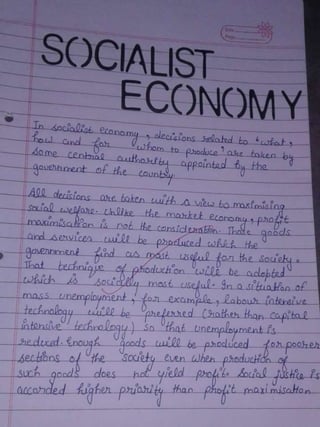 Date
Page
SOCIALIST
ECONOMY
In socialist economy, decisions related to 'what,
how and for whom to produce' are taken by
some central authority appointed by the
government of the country.
All decisions are taken with a view to maximising
social welfare. Unlike the market economy, profit
maximisation is not the consideration. Those goods
and services will be produced which the
government find as most useful for the society.
That technique of production will be adopted
which is socially most useful. In a situation of
mass unemployment, for example, labour intensive
technology will be preferred (rather than capital
intensive technology) so that unemployment is
reduced. Enough goods will be produced for poorer
sections of the society even when production of
such goods does not yield profit. Social justice is
accorded higher priority than profit maximisation